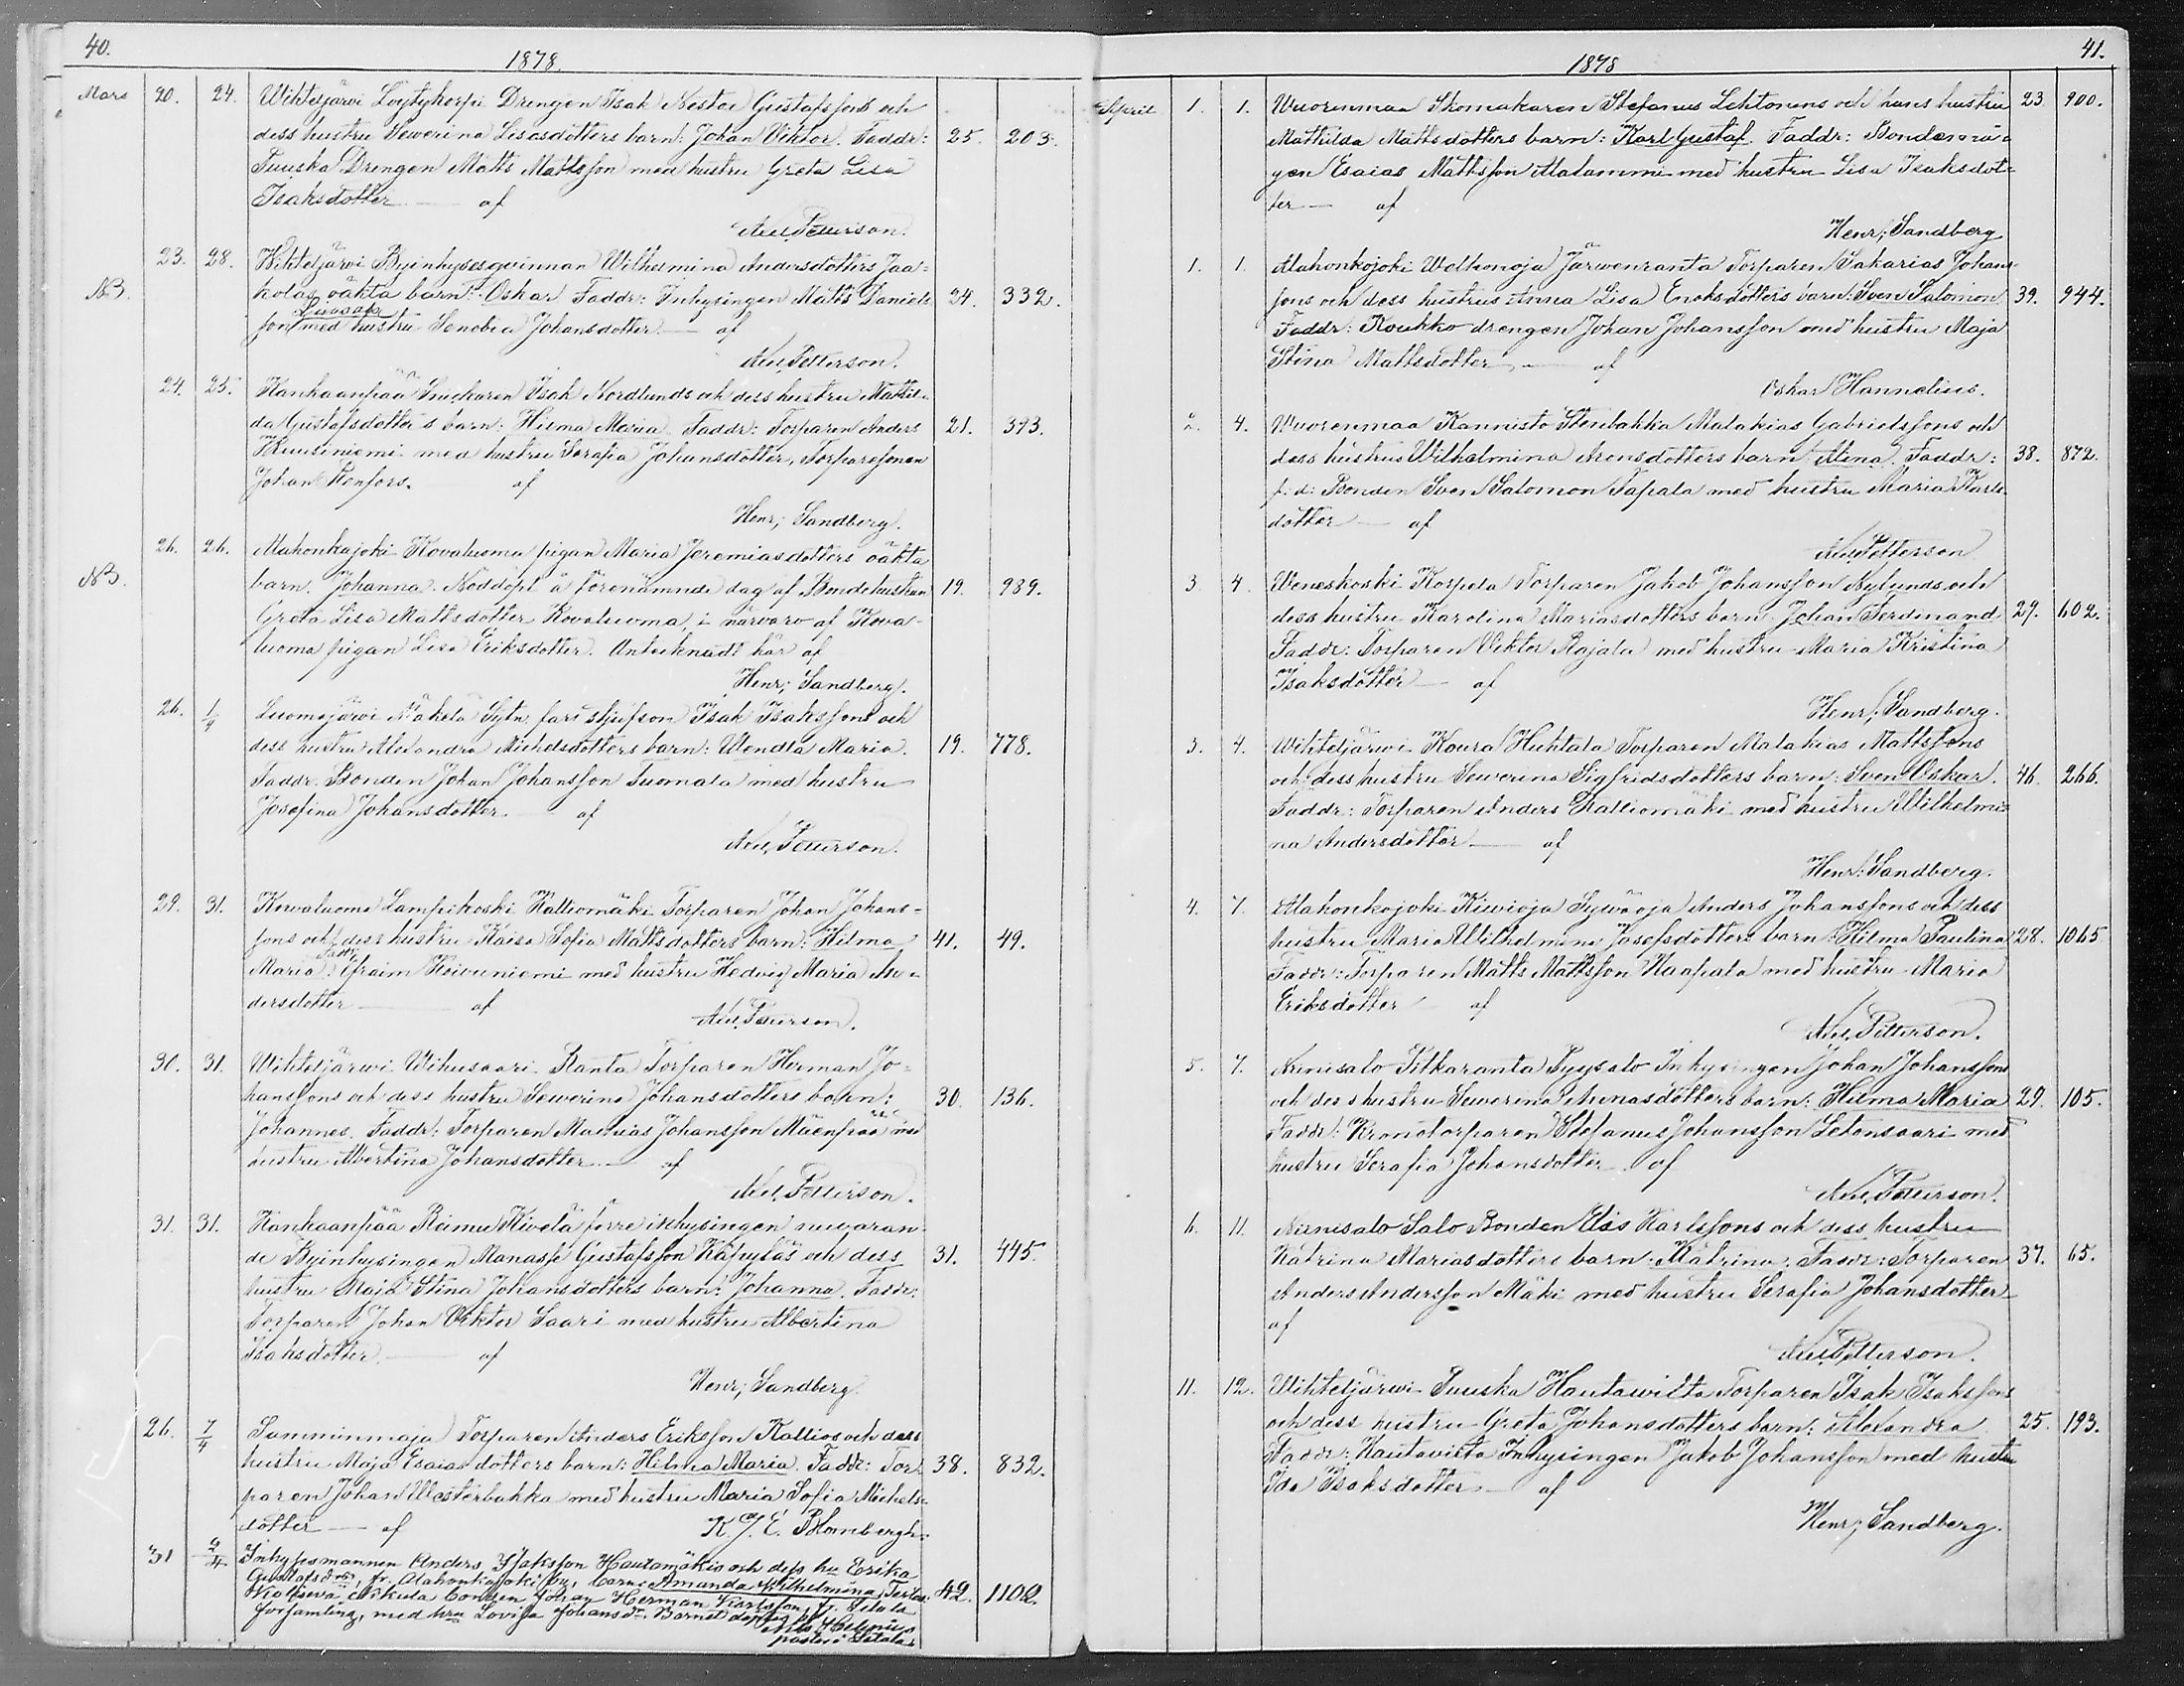 40.
1878.
Mars 20. 24. Wihteljärvi Löytykorpi Drengen Isak Nestor Gustafssons och
dess hustru Sewerina Isaksdotters barn: Johan Viktor. Faddr: 25. 203.
Puuska Drengen Matts Mattsson med hustru Greta Lisa
Isaksdotter — af
Axel Petterson.
23. 28. Wihteljärvi Byinhysesqvinnan Wilhelmina Andersdotters Jaa-
NB. kolas oäkta barn: Oskar Faddr: Inhysingen Matts Daniels- 24. 332.
son med hustru Senobia Johansdotter — af
Axel Petterson.
24. 25. Kankaanpää Snickaren Isak Nordlunds och dess hustru Mathil-
da Gustafsdotters barn: Hilma Maria. Faddr: Torparen Anders 21. 393.
Kuusiniemi med hustru Serafia Johansdotter, Torparesonen
Johan Renfors. af
Henr; Sandberg.
26. 26. Alahonkajoki Kovaluoma pigan Maria Jeremiasdotters oäkta
NB. barn. Johanna. Nöddöpt å förenämnde dag af Bondehustrun 19. 989.
Greta Lisa Mattsdotter Kovaluoma, i närvaro af Kova-
luoma pigan Lisa Eriksdotter. Antecknadt här af
Henr; Sandberg.
26. 1/4 Luomajärvi Mäkelä Sytn. fars styfson Isak Isakssons och
dess hustru Alexandra Michelsdotters barn: Wendla Maria. 19. 778.
Faddr. Bonden Johan Johansson Tuomala med hustru
Josefina Johansdotter af
Axel Petterson.
29. 31. Korvaluoma Lampikoski Kalliomäki Torparen Johan Johans-
sons och dess hustru Kaisa Sofia Mattsdotters barn: Hilma 41. 49.
Maria. Faddr: Efraim Koivuniemi med hustru Hedvig Maria An-
dersdotter — af
Axel Petterson.
30. 31. Wihteljärwi Wihusaari Ranta Torparen Herman Jo-
hanssons och dess hustru Sewerina Johansdotters barn: 30. 136.
Johannes. Faddr: Torparen Mathias Johansson Mäenpää med
hustru Albertina Johansdotter — af
Axel Petterson.
31. 31. Kankaanpää Kivelä förre inhysingen nuvaran-
de Byinhysingen Manasse Gustafsson Käpyläs och dess 31. 445.
hustru Maja Stina Johansdotters barn: Johanna. Faddr:
Torparen Johan Viktor Saari med hustru Albertina
Isaksdotter — af
Henr; Sandberg.
26. 7/4 Samminmaja Torparen Anders Eriksson Kallios och dess
hustru Maja Esaiasdotters barn: Hilma Maria. Faddr: Tor- 38. 832.
paren Johan Westerbakka med hustru Maria Sofia Michels-
dotter — af K. J. E. Blombergh.
31 2/4 Inhysesmannen Anders Isaksson Hautamäkis och dess hu Erika
Gustafsdrs, fr. Alahonkajoki by, barn: Amanda Wilhelmina, Test.
bonden Johan Herman Karlsson fr. Siikais 42. 1102.
församling, med hru Lovisa Johansdr. Barnet döptes af
pastor i Siikais
41.
1878
April 1. 1. Wuorenmaa Skomakaren Stefanus Lehtonens och hans hustru 23. 900.
Mathilda Mattsdotters barn: Karl Gustaf. Faddr: Bondemå-
gen Esaias Mattsson Alatammi med hustru Lisa Isaksdot-
ter — af
Henr; Sandberg
1. 1. Alahonkojoki Welhonoja Järwenranta Torparen Sakarias Johans-
sons och dess hustrus Anna Lisa Enoksdotters barn: Sven Salomon. 39. 944.
Faddr: Koukko drengen Johan Johansson med hustru Maja
Stina Mattsdotter — af
Oskar Hannelius.
2. 4. Wuorenmaa Kannisto Stenbakka Malakias Gabrielssons och
dess hustrus Wilhelmina Aronsdotters barn: Alina. Faddr: 38. 872.
f. d. Bonden Sven Salomon Tapala med hustru Maria Karls-
dotter — af
Axel Petterson
3 4. Weneskoski Korpela Torparen Jakob Johansson Nylunds och
dess hustru Karolina Mariasdotters barn Johan Ferdinand 29. 602.
Faddr: Torparen Viktor Rajala med hustru Maria Kristina
Isaksdotter — af
Henr; Sandberg.
3. 4. Wihteljärwi Koura Huhtala Torparen Malakias Mattssons
och dess hustru Sewerina Sigfridsdotters barn: Sven Oskar. 46. 266.
Faddr: Torparen Anders Kalliomäki med hustru Wilhelmi-
na Andersdotter — af
Henr: Sandberg.
4. 7. Alahonkojoki Kiwioja Sywäoja Anders Johanssons och dess
hustru Maria Wilhelmina Josefsdotters barn: Hilma Paulina 28. 1065
Faddr: Torparen Matts Mattsson Haapala med hustru Maria
Eriksdotter af
Axel Petterson.
5. 7. Niinisalo Pitkaranta Pyysalo Inhysingen Johan Johanssons
och dess hustru Sewerina Manasdotters barn: Hilma Maria 29. 105.
Faddr: Kronotorparen Stefanus Johansson Letensaari med
hustru Serafia Johansdotter af
Axel Petterson.
6. 11. Niinisalo Salo Bonden Elis Karlssons och dess hustru
Katrina Mariasdotters barn: Katrina. Faddr: Torparen 37. 65.
Anders Andersson Mäki med hustru Serafia Johansdotter
af
Axel Petterson.
11. 12. Wihteljärwi Puuska Hautawilta Torparen Isak Isakssons
och dess hustru Greta Johansdotters barn: Alexandra 25. 193.
Faddr: Hautavista Inhysingen Jakob Johansson med hustru
Ida Isaksdotter — af
Henr; Sandberg.